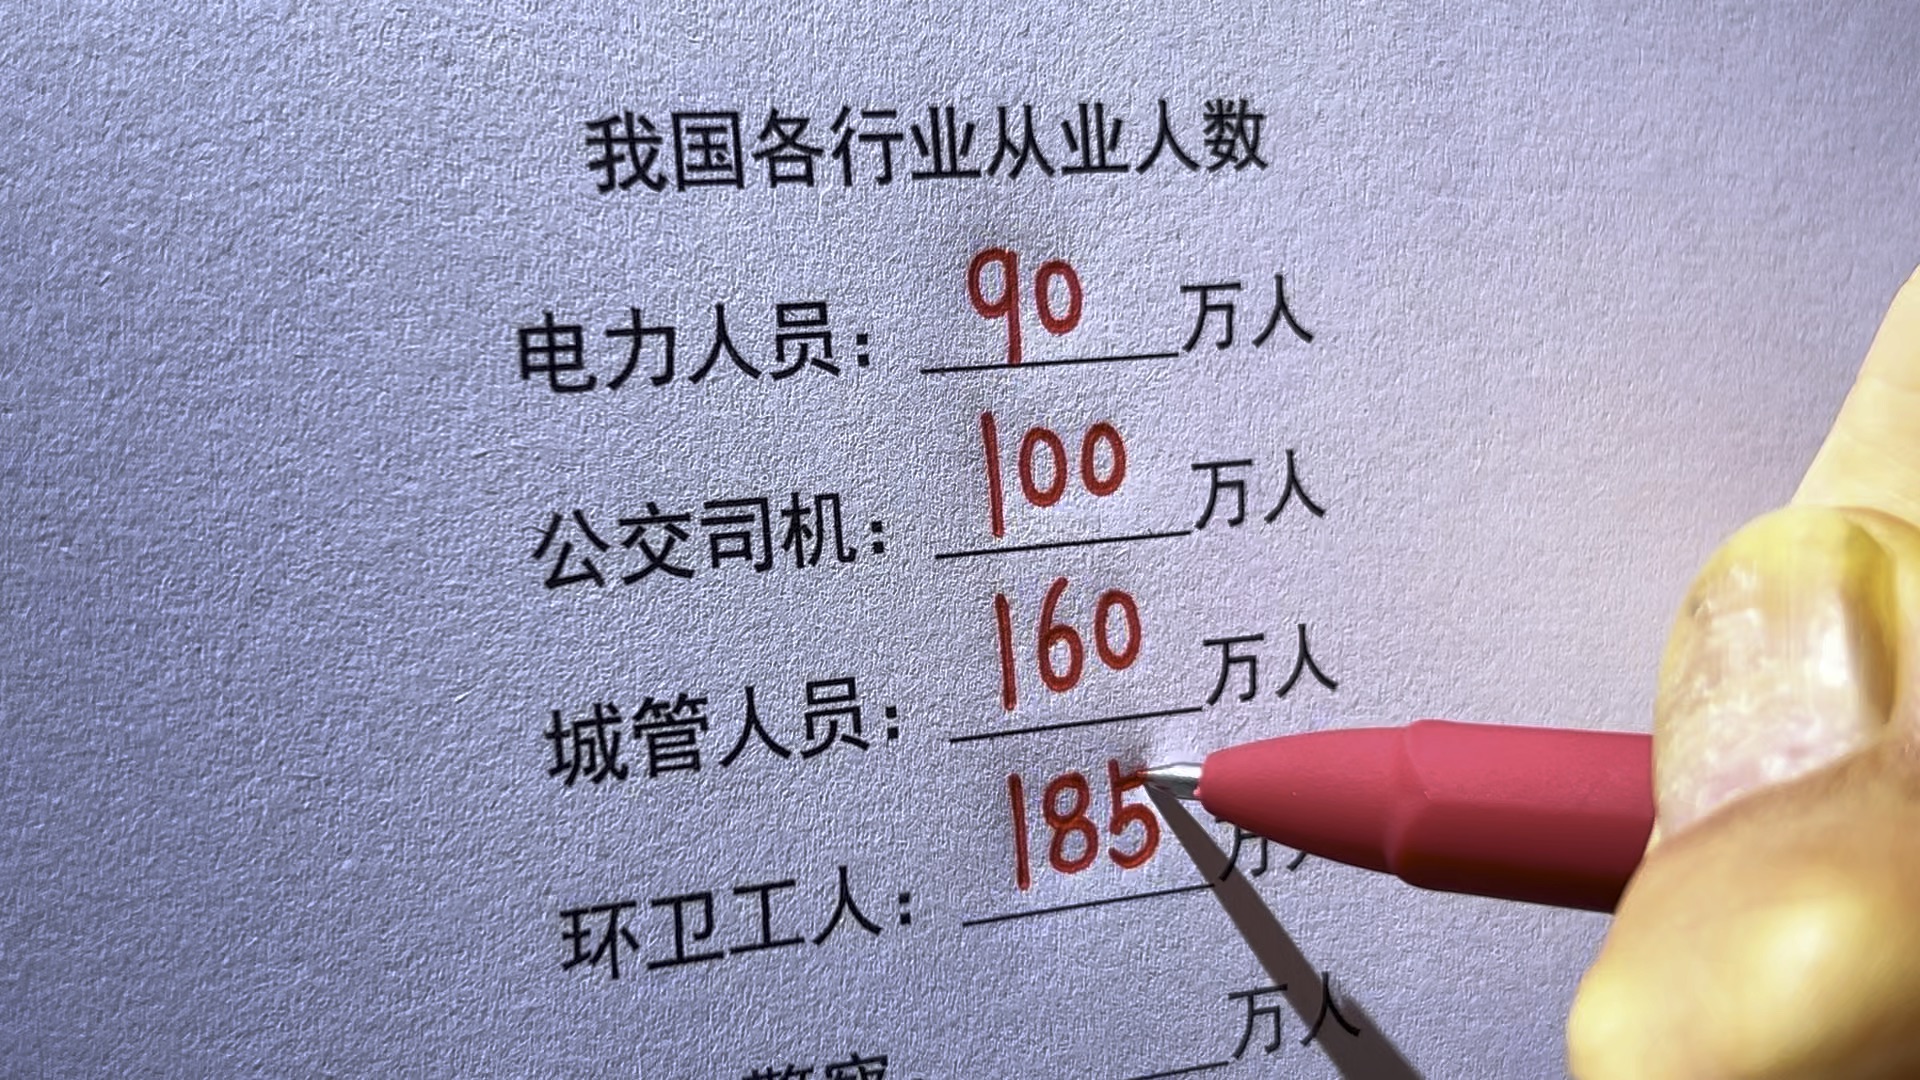 我国各行业从业人数
电力人员：90万人
公交司机：100万人
城管人员：160万人
环卫工人：185万人
警察：万人